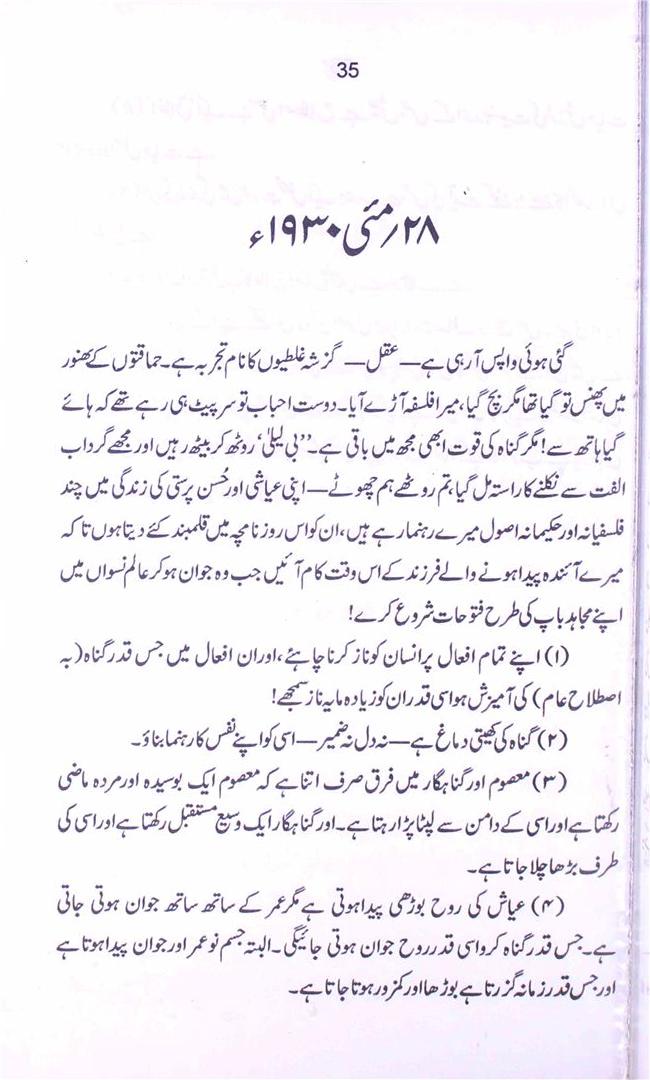 35
۲۸؍مئی ۱۹۳۰ء
گئی ہوئی واپس آرہی ہے — عقل — گزشتہ غلطیوں کا نام تجربہ ہے۔ حماقتوں کے بھنور
میں پھنس تو گیا تھا مگر بچ گیا، میرا فلسفہ آڑے آیا۔ دوست احباب تو سر پیٹ ہی رہے تھے کہ ہائے
گیا ہاتھ سے! مگر گناہ کی قوت ابھی مجھ میں باقی ہے۔ ”بی لیلیٰ‘ روٹھ کر بیٹھ رہیں اور مجھے گرداب
الفت سے نکلنے کا راستہ مل گیا، تم روٹھے ہم چھوٹے — اپنی عیاشی اور حُسن پرستی کی زندگی میں چند
فلسفیانہ اور حکیمانہ اصول میرے رہنما رہے ہیں، ان کو اس روزنامچہ میں قلمبند کئے دیتا ہوں تا کہ
میرے آئندہ پیدا ہونے والے فرزند کے اس وقت کام آئیں جب وہ جوان ہو کر عالم نسواں میں
اپنے مجاہد باپ کی طرح فتوحات شروع کرے!
(۱) اپنے تمام افعال پر انسان کو ناز کرنا چاہئے، اور ان افعال میں جس قدر گناہ (بہ
اصطلاح عام) کی آمیزش ہو اسی قدر ان کو زیادہ مایہ ناز سمجھے!
(۲) گناہ کی کھیتی دماغ ہے — نہ دل نہ ضمیر — اسی کو اپنے نفس کا رہنما بناؤ۔
(۳) معصوم اور گناہگار میں فرق صرف اتنا ہے کہ معصوم ایک بوسیدہ اور مردہ ماضی
رکھتا ہے اور اسی کے دامن سے لپٹا پڑا رہتا ہے۔ اور گناہگار ایک وسیع مستقبل رکھتا ہے اور اسی کی
طرف بڑھا چلا جاتا ہے۔
(۴) عیاش کی روح بوڑھی پیدا ہوتی ہے مگر عمر کے ساتھ ساتھ جوان ہوتی جاتی
ہے۔ جس قدر گناہ کرو اسی قدر روح جوان ہوتی جائیگی۔ البتہ جسم نوعمر اور جوان پیدا ہوتا ہے
اور جس قدر زمانہ گزرتا ہے بوڑھا اور کمزور ہوتا جاتا ہے۔